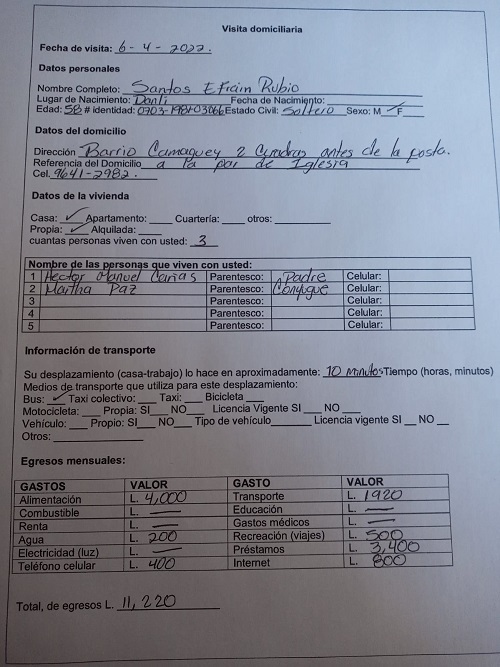 Visita domiciliaria
Fecha de visita: 6-4-2022.
Datos personales
Nombre Completo: Santos Efrain Rubio
Lugar de Nacimiento: Danlí Fecha de Nacimiento:
Edad: 58 # identidad: Estado Civil: Soltero Sexo: M ✓ F
Datos del domicilio
Dirección Barrio Camaguey 2 Cuadras antes de la posta.
Referencia del Domicilio a la par de Iglesia
Cel. 9641-2982.
Datos de la vivienda
Casa: ✓ Apartamento: Cuartería: otros:
Propia: ✓ Alquilada:
cuantas personas viven con usted: 3
Nombre de las personas que viven con usted:
1 Hector Manuel Carias Parentesco: Padre Celular:
2 Martha Paz Parentesco: Conyugue Celular:
3 Parentesco: Celular:
4 Parentesco: Celular:
5 Parentesco: Celular:
Información de transporte
Su desplazamiento (casa-trabajo) lo hace en aproximadamente: 10 minutos Tiempo (horas, minutos)
Medios de transporte que utiliza para este desplazamiento:
Bus: ✓ Taxi colectivo: Taxi: Bicicleta
Motocicleta: Propia: SI NO Licencia Vigente SI NO
Vehículo: Propio: SI NO Tipo de vehículo Licencia vigente SI NO
Otros:
Egresos mensuales:
GASTOS VALOR GASTO VALOR
Alimentación L. 4,000 Transporte L. 1920
Combustible L. — Educación L. —
Renta L. — Gastos médicos L. —
Agua L. 200 Recreación (viajes) L. 500
Electricidad (luz) L. — Préstamos L. 3,400
Teléfono celular L. 400 Internet L. 800
Total, de egresos L. 11,220